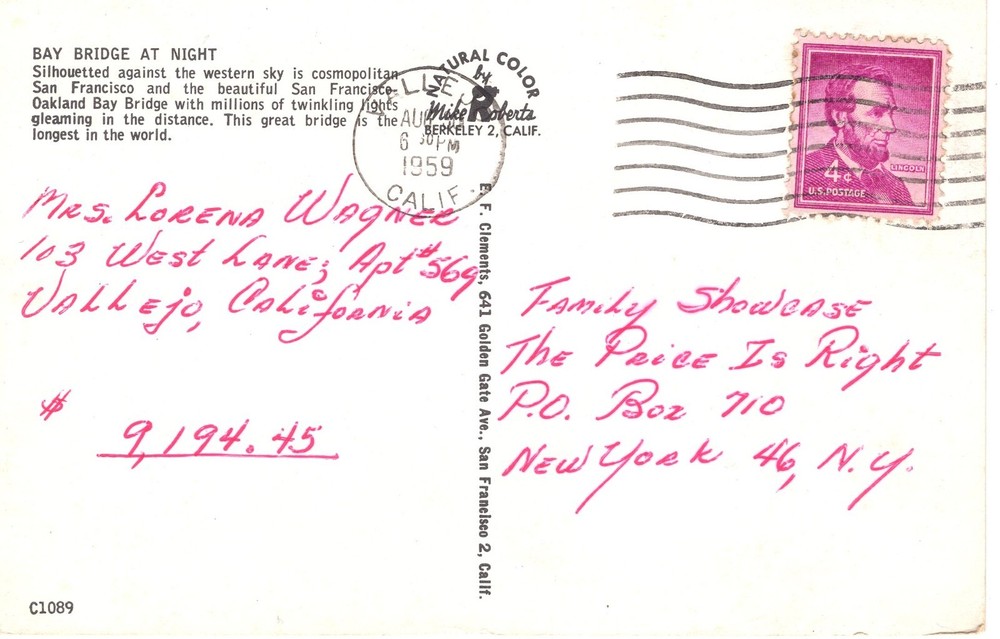 BAY BRIDGE AT NIGHT
Silhouetted against the western sky is cosmopolitan
San Francisco and the beautiful San Francisco-
Oakland Bay Bridge with millions of twinkling lights
gleaming in the distance. This great bridge is the
longest in the world.
NATURAL COLOR
by
Mike Roberts
BERKELEY 2, CALIF.
AUG
6 30 PM
1959
CALIF.
LINCOLN
4¢
U.S. POSTAGE
Mrs. Lorena Wagner
103 West Lane; Apt #569
Vallejo, California
$
9,194.45
E. F. Clements, 641 Golden Gate Ave., San Francisco 2, Calif.
Family Showcase
The Price Is Right
P.O. Box 710
New York 46, N.Y.
C1089